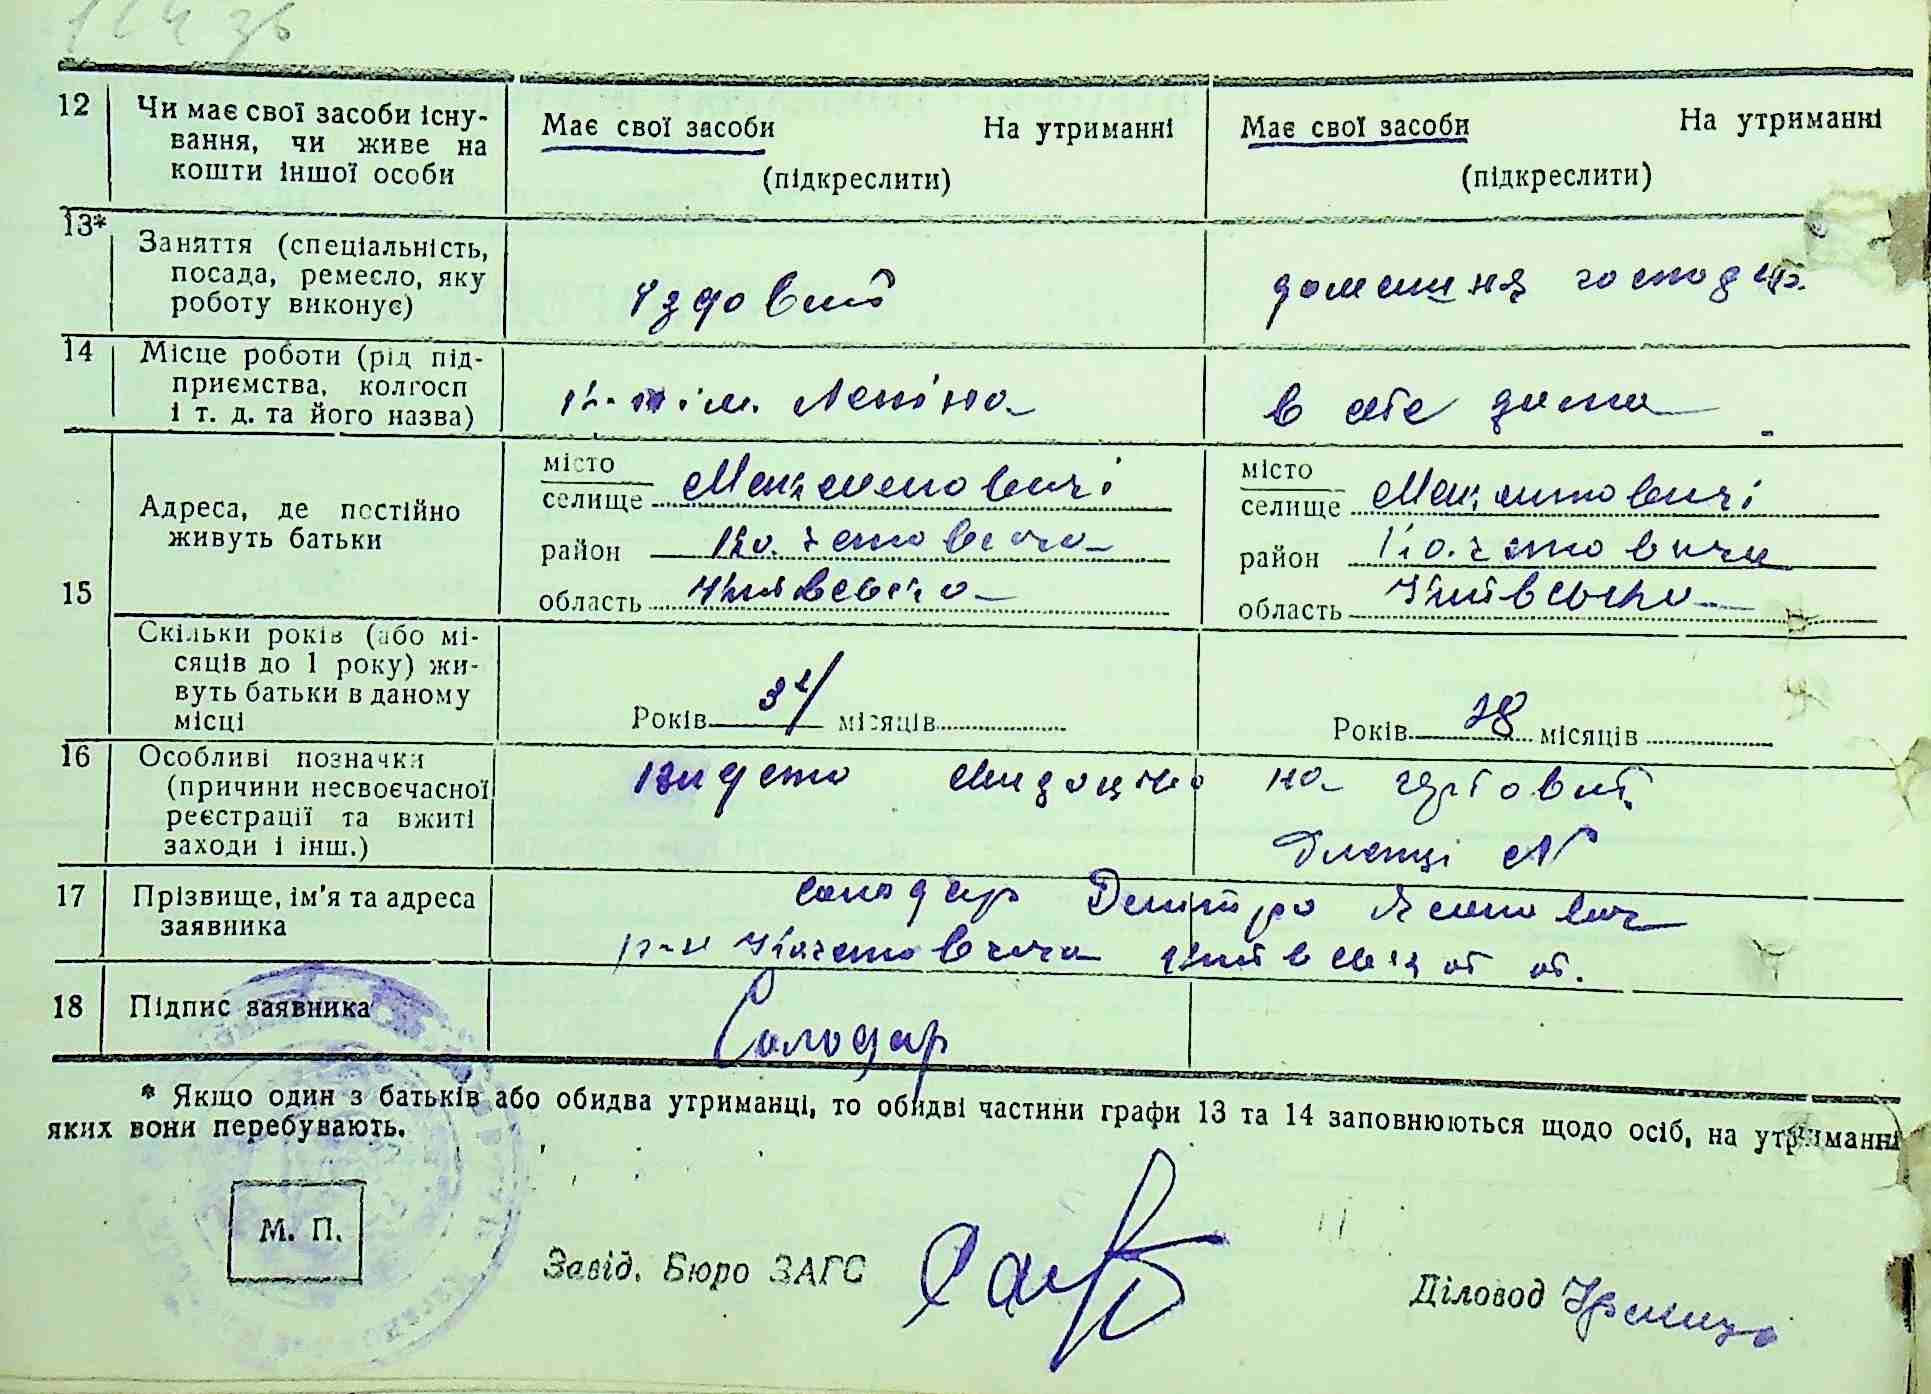 12 Чи має свої засоби існу-
вання, чи живе на
кошти іншої особи
Має свої засоби На утриманні
(підкреслити)
Має свої засоби На утриманні
(підкреслити)
13* Заняття (спеціальність,
посада, ремесло, яку
роботу виконує)
їздовий
домашня господар.
14 Місце роботи (рід під-
приємства, колгосп
і т. д. та його назва)
ім. Леніна
в дома
15 Адреса, де постійно
живуть батьки
місто
селище Максимовичі
район
область Київська
місто
селище Максимовичі
район
область Київська
Скільки років (або мі-
сяців до 1 року) жи-
вуть батьки в даному
місці
Років місяців
Років 28 місяців
16 Особливі позначки
(причини несвоєчасної
реєстрації та вжиті
заходи і інш.)
видано свидоцтво на гербовій
бланці №
17 Прізвище, ім'я та адреса
заявника
Солодар Дмитро
р-н Київської об.
18 Підпис заявника
Солодар
* Якщо один з батьків або обидва утриманці, то обидві частини графи 13 та 14 заповнюються щодо осіб, на утриманні
яких вони перебувають.
М. П.
Завід. Бюро ЗАГС
Діловод